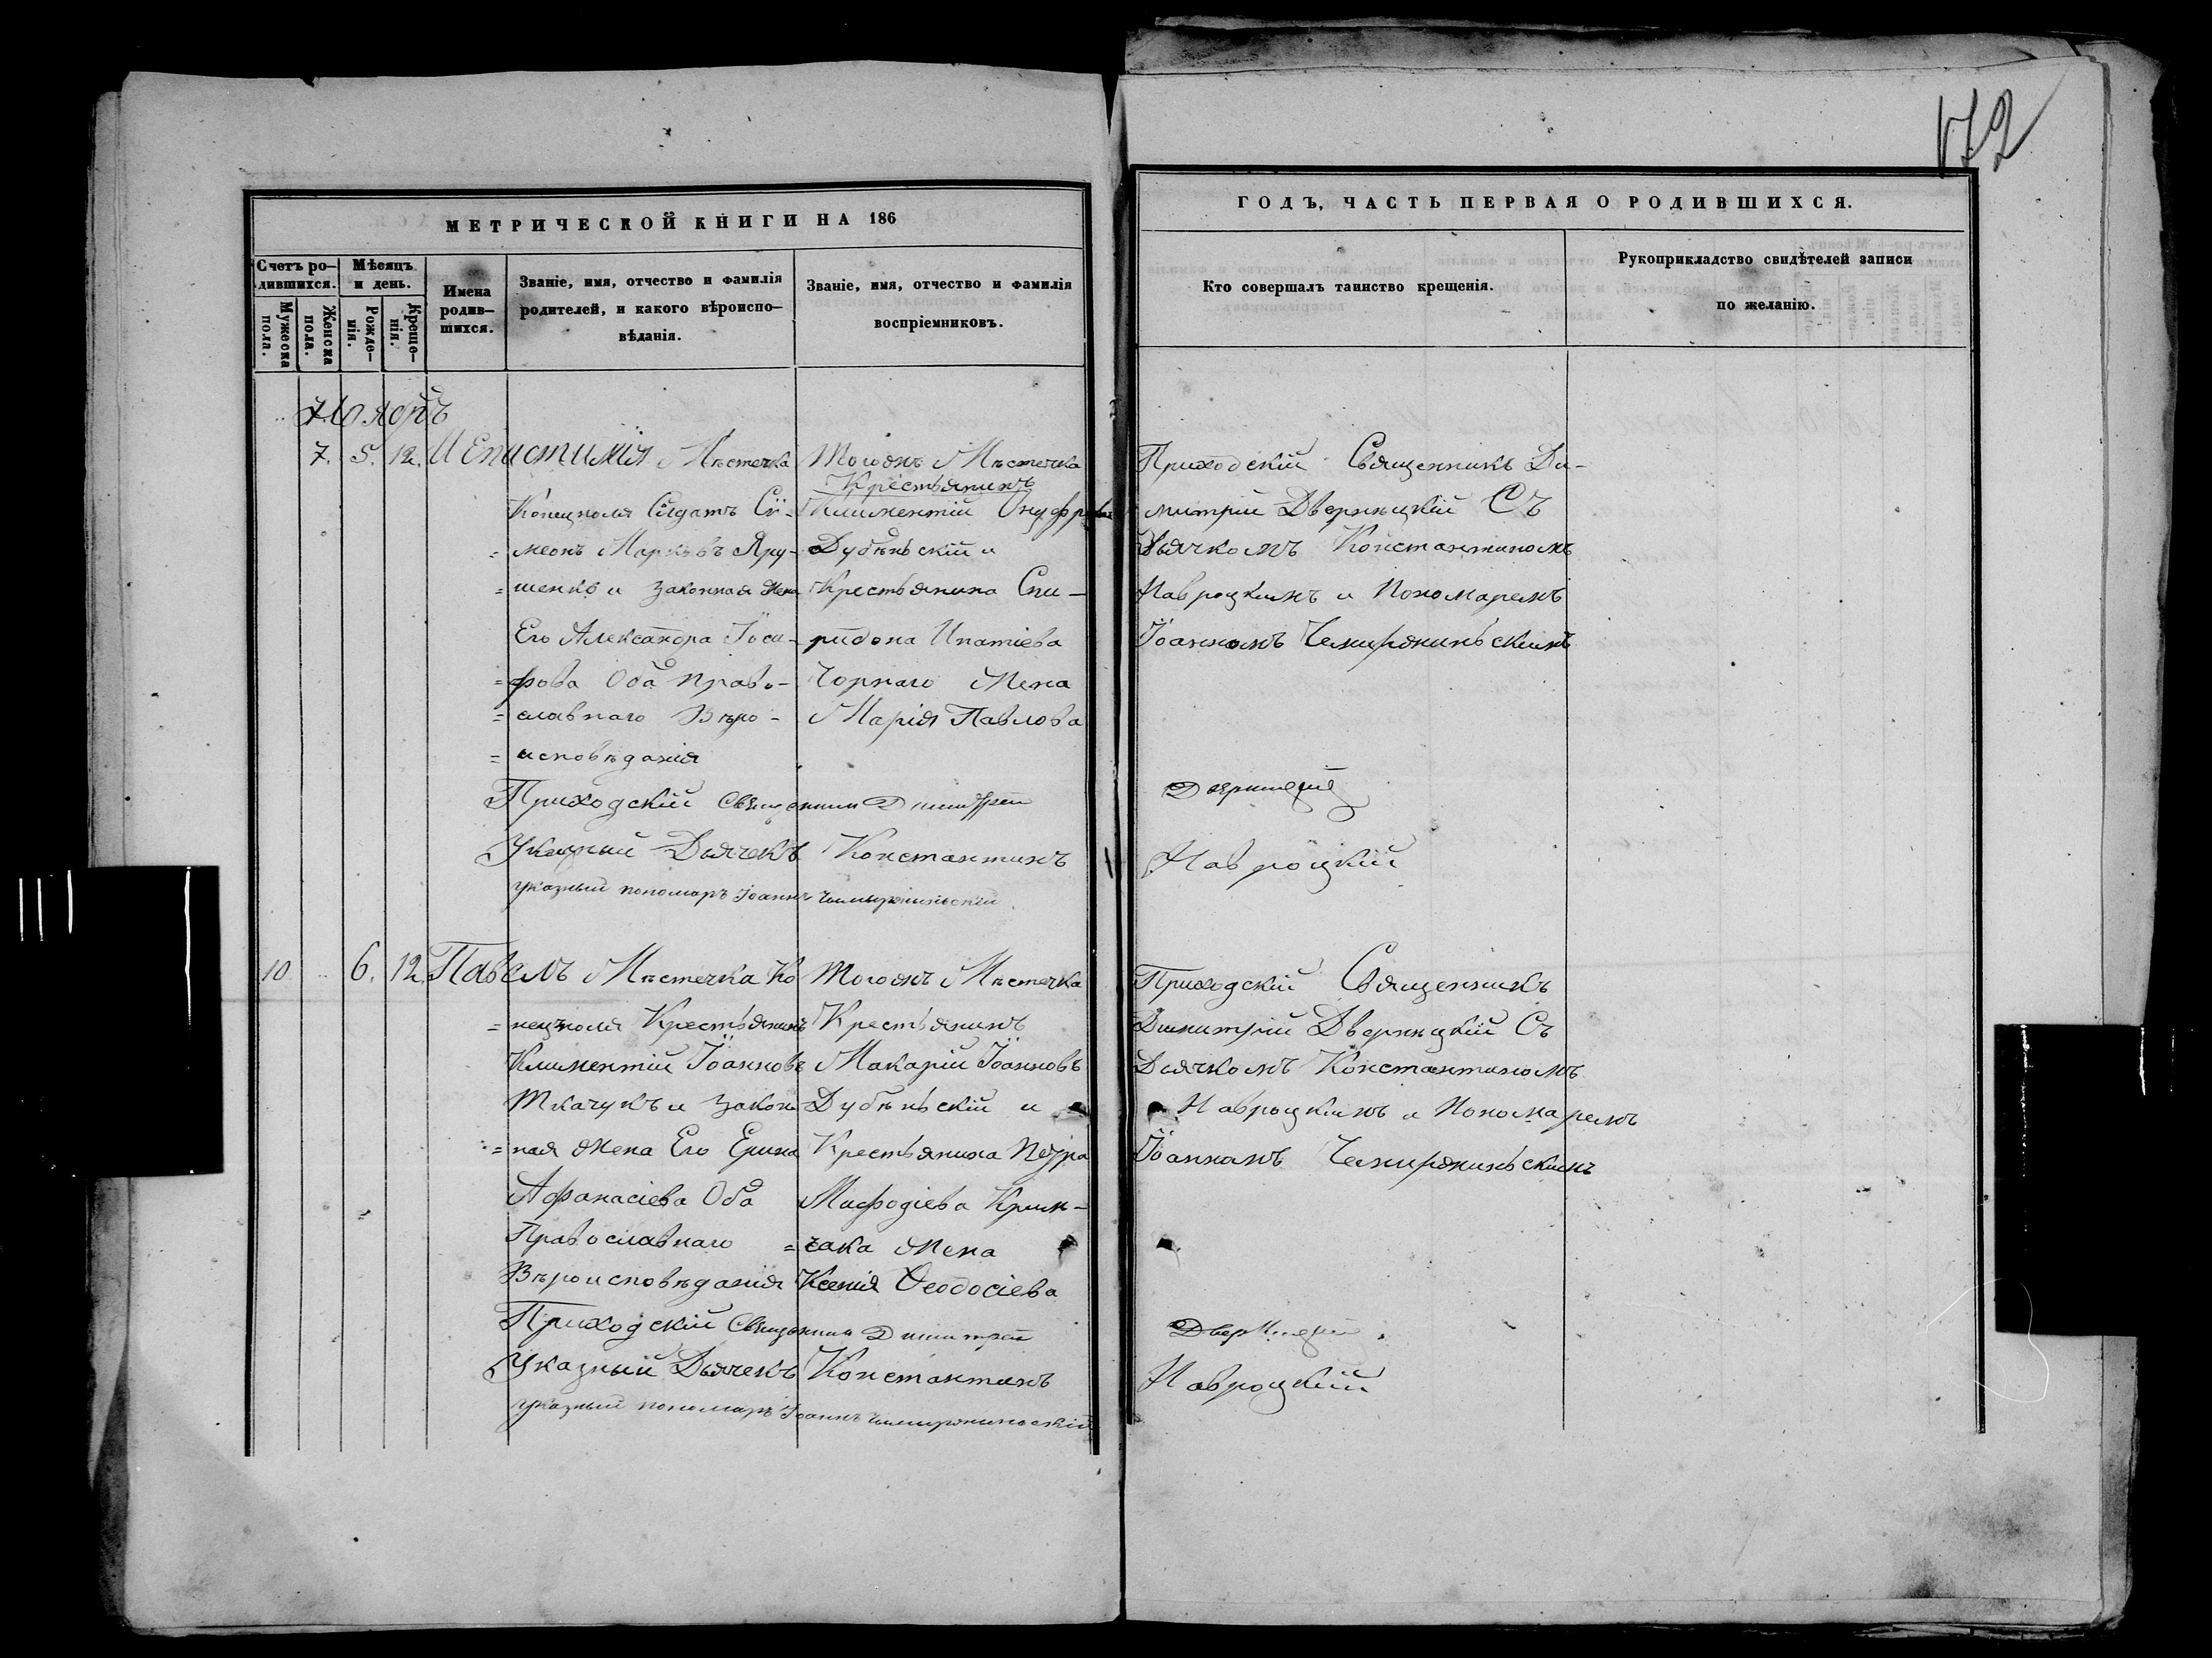 172
МЕТРИЧЕСКОЙ КНИГИ НА 186
Счетъ ро-
дившихся.
Мужеска
пола.
Женска
пола.
Мѣсяцъ
и день.
Рожде-
нія.
Креще-
нія.
Имена
родив-
шихся.
Званіе, имя, отчество и фамилія
родителей, и какого вѣроиспо-
вѣданія.
Званіе, имя, отчество и фамилія
воспріемниковъ.
ГОДЪ, ЧАСТЬ ПЕРВАЯ О РОДИВШИХСЯ.
Кто совершалъ таинство крещенія.
Рукоприкладство свидѣтелей записи
по желанію.
Ноябрь
7. 5. 12. Епистимія Мѣстечка
Конецполя Солдатъ Сѵ-
=меонъ Марковъ Яру-
=шенко и законная жена
Его Александра Іоси-
=фова Оба право-
=славнаго Вѣро-
=исповѣданія
Тогожъ Мѣстечка
Крестьянинъ
Климентій Онуфріевъ
Дубѣньскій и
Крестьянина Спи-
ридона Ипатіева
Чорнаго Жена
Марія Павлова
Приходскій Священникъ Ди-
митрій Дверницкій Съ
Дьячкомъ Константиномъ
Навроцкимъ и Пономаремъ
Іоанномъ Чемержиньскимъ
Приходскій Священникъ Димитрій Дверницкій
Указный Дьячекъ Константинъ Навроцкій
указный пономарь Іоаннъ Чемержиньскій
10 .. 6. 12. Павелъ Мѣстечка Ко
=нецполя Крестьянинъ
Климентій Іоанновъ
Ткачукъ и закон
=ная жена Его Ерина
Афанасіева Оба
Православнаго
Вѣроисповѣданія
Тогожъ Мѣстечка
Крестьянинъ
Макарій Іоанновъ
Дубѣньскій и
Крестьянина Петра
Мифодіева Крим-
=чака Жена
Ксенія Ѳеодосіева
Приходскій Священникъ
Димитрій Дверницкій Съ
Дьячкомъ Константиномъ
Навроцкимъ и Пономаремъ
Іоанномъ Чемержиньскимъ
Приходскій Священникъ Димитрій Дверницкій
Указный Дьячекъ Константинъ Навроцкій
указный пономарь Іоаннъ Чемержиньскій